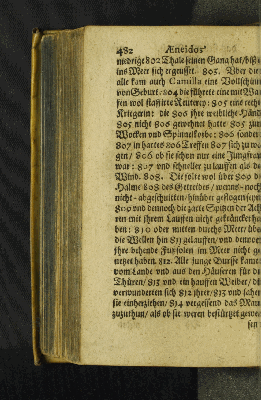 482 Æneidos
niedrige 802 Thale seinen Gang hat / biß
ins Meer sich ergeusset. 803. Uber die
alle kam auch Camilla eine
von Geburt: 804 die führete eine mit
fen wol staffirte Reuterey: 805 eine
Kriegerin: die 805 ihre weibliche Händ
805 nicht 806 gewehnet hatte 805 zum
Wocken und Spinnekorbe: 806 sondern
807 in hartes 806 Treffen 807 sich zu
gen / 806 ob sie schon nur eine Jungfrau
war: 807 und schneller zu lauffen als der
Wind. 808. Die solte wol über 809 die
Halme 808 des Getreides / wenns noch
nicht abgeschnitten / hinüber geflogen seyn
809 und dennoch die zarte Spitzen der
ren mit ihrem Lauffen nicht gekräncket
ben: 810 oder mitten durchs Meer über
die Wellen hin 811 gelauffen / und dennoch
ihre behende Fußsolen im Meer nicht
netzet haben. 812. Alle junge Bursse kamen
vom Lande und aus den Häusern für die
Thüren / 813 und ein hauffen Weiber / die
verwunderten sich 812 ihrer / 813 und sahen
sie einherziehen / 814 vergessend das Maul
zuzuthun / als ob sie weren bestürtzet
sen